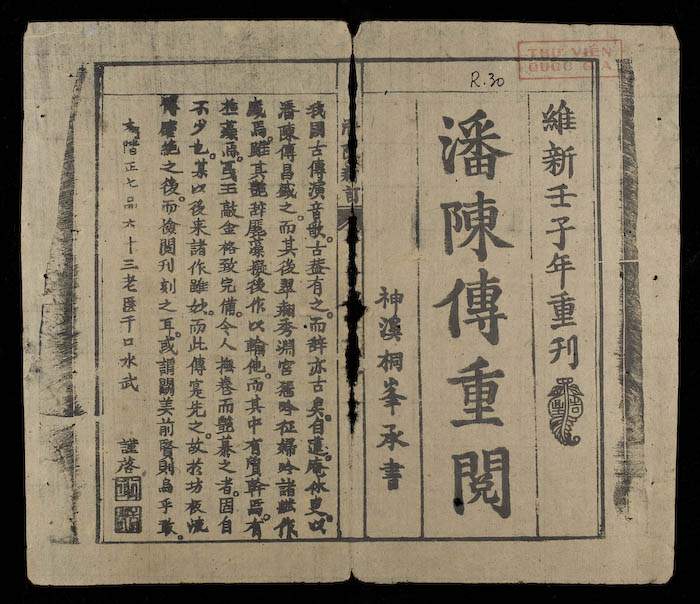 R.30
THƯ VIỆN
QUỐC GIA
維新壬子年重刊
潘陳傳重閱
神溪桐峯承書
我國古傳演音歌。古蓋有之。而辭亦古矣。自蓮庵休叟。以
潘陳傳昌盛之。而其後翠翹秀淵宮怨吟征婦吟諸繼作
焉。雖其艷辭麗藻。擬後作以輸他。而其中有質幹焉。有
焉。戛玉敲金。格致完備。令人撫卷而艷慕之者。固自
不少也。某以後來諸作雖妙。而此傳寔先之。故於坊板流
絕之後。而檢閱刊刻之耳。或謂關美前賢。則烏乎敢。
階正七品六十三老医千口水武 謹啓